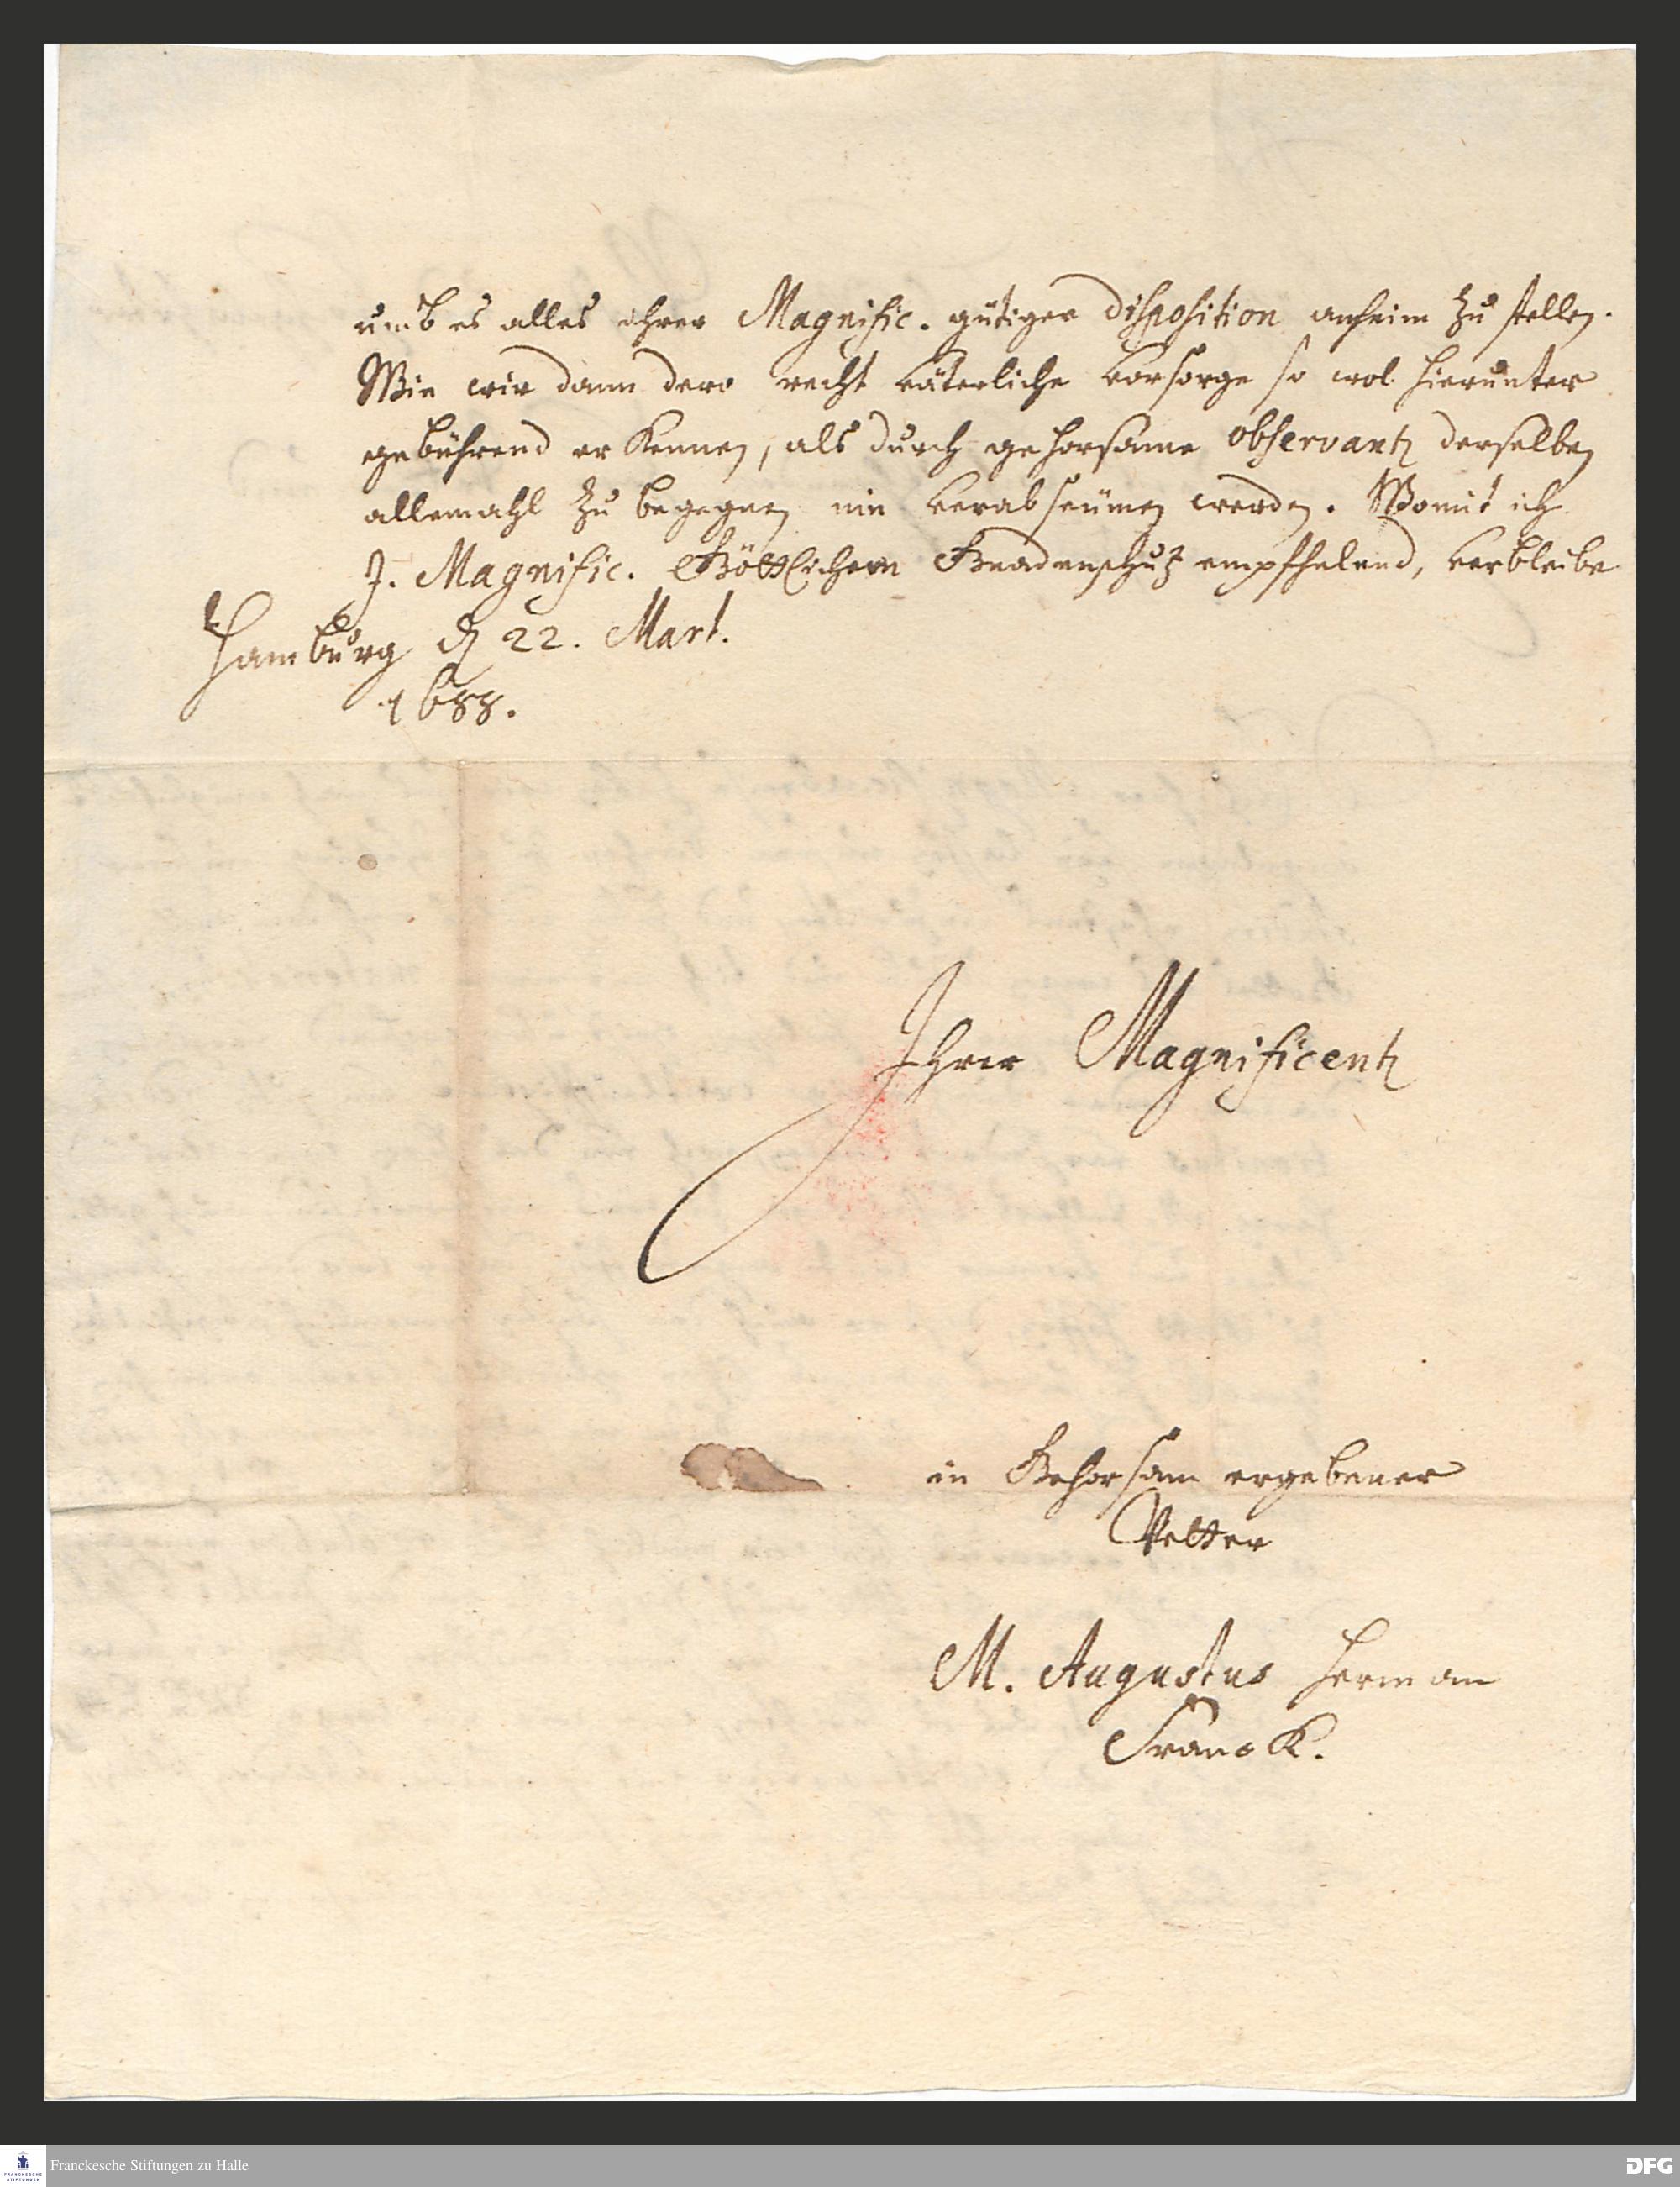 umb es alles ihrer Magnific. gütiger disposition anheim zu stellen.
Wie wir dann dero recht väterliche vorsorge so wol hierunter
gebührend erkennen, als durch gehorsame observantz derselben
allemahl zu begegnen nie verabseumen werden. Womit ich
J. Magnific. Göttlichem Gnadenschutz empfhelend, verbleibe
Hamburg d. 22. Mart.
1688.
Ihrer Magnificentz
in Gehorsam ergebener
Vetter
M. Augustus Herman
Franck.
Franckesche Stiftungen zu Halle
FRANCKESCHE
STIFTUNGEN
DFG